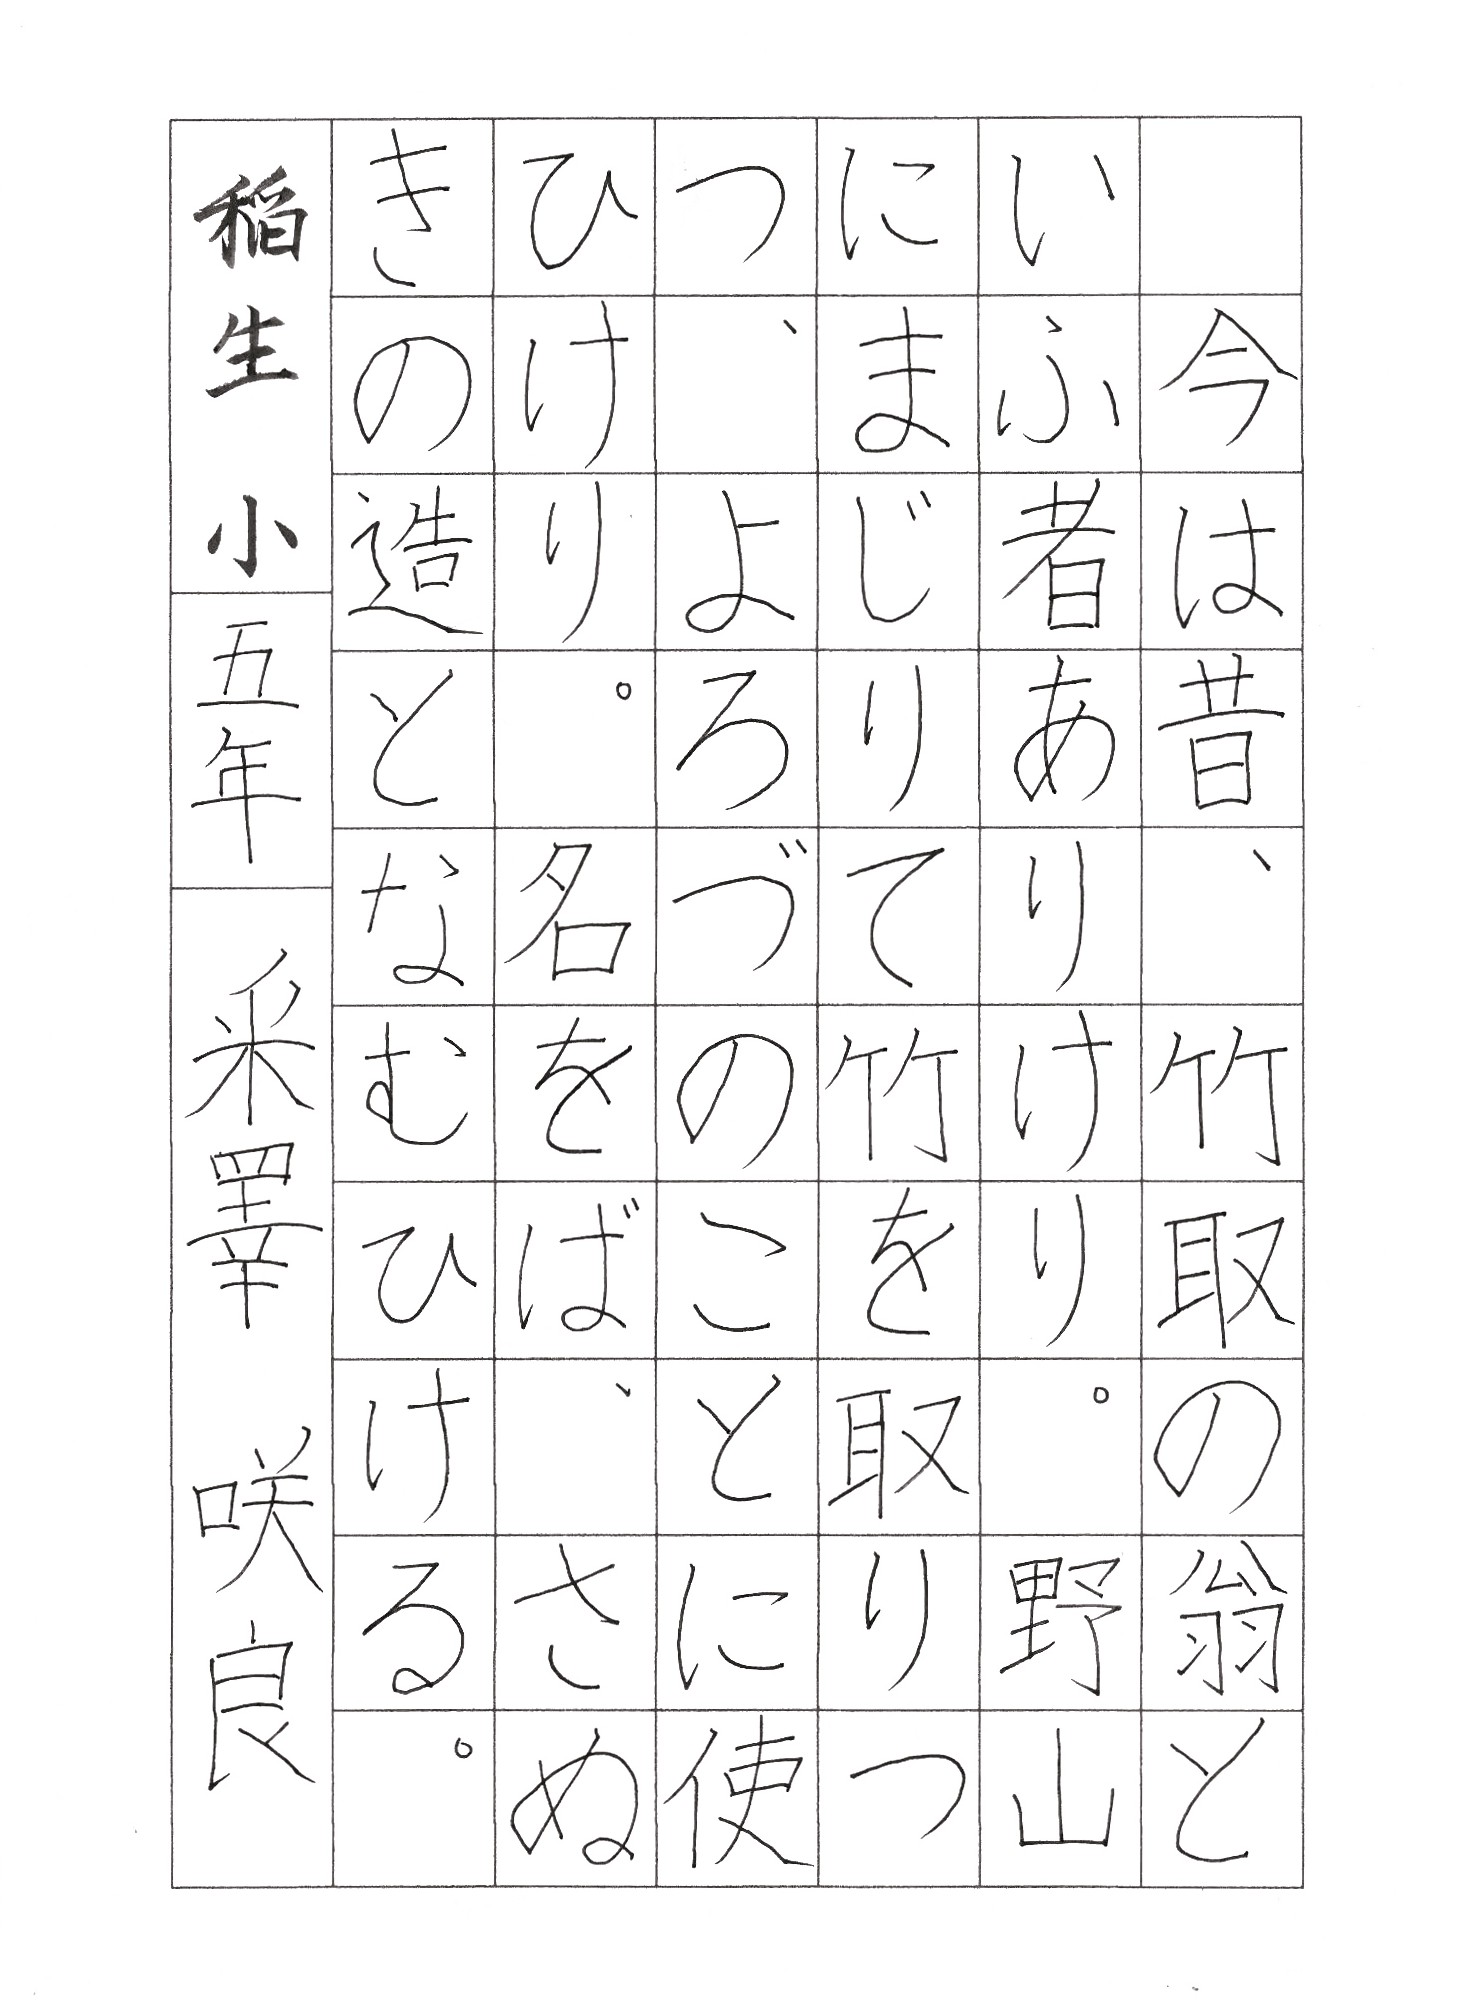 今は昔、竹取の翁と
いふ者ありけり。野山
にまじりて竹を取りつ
つ、よろづのことに使
ひけり。名をば、さぬ
きの造となむひける。
稲生小 五年 釆睪 咲良